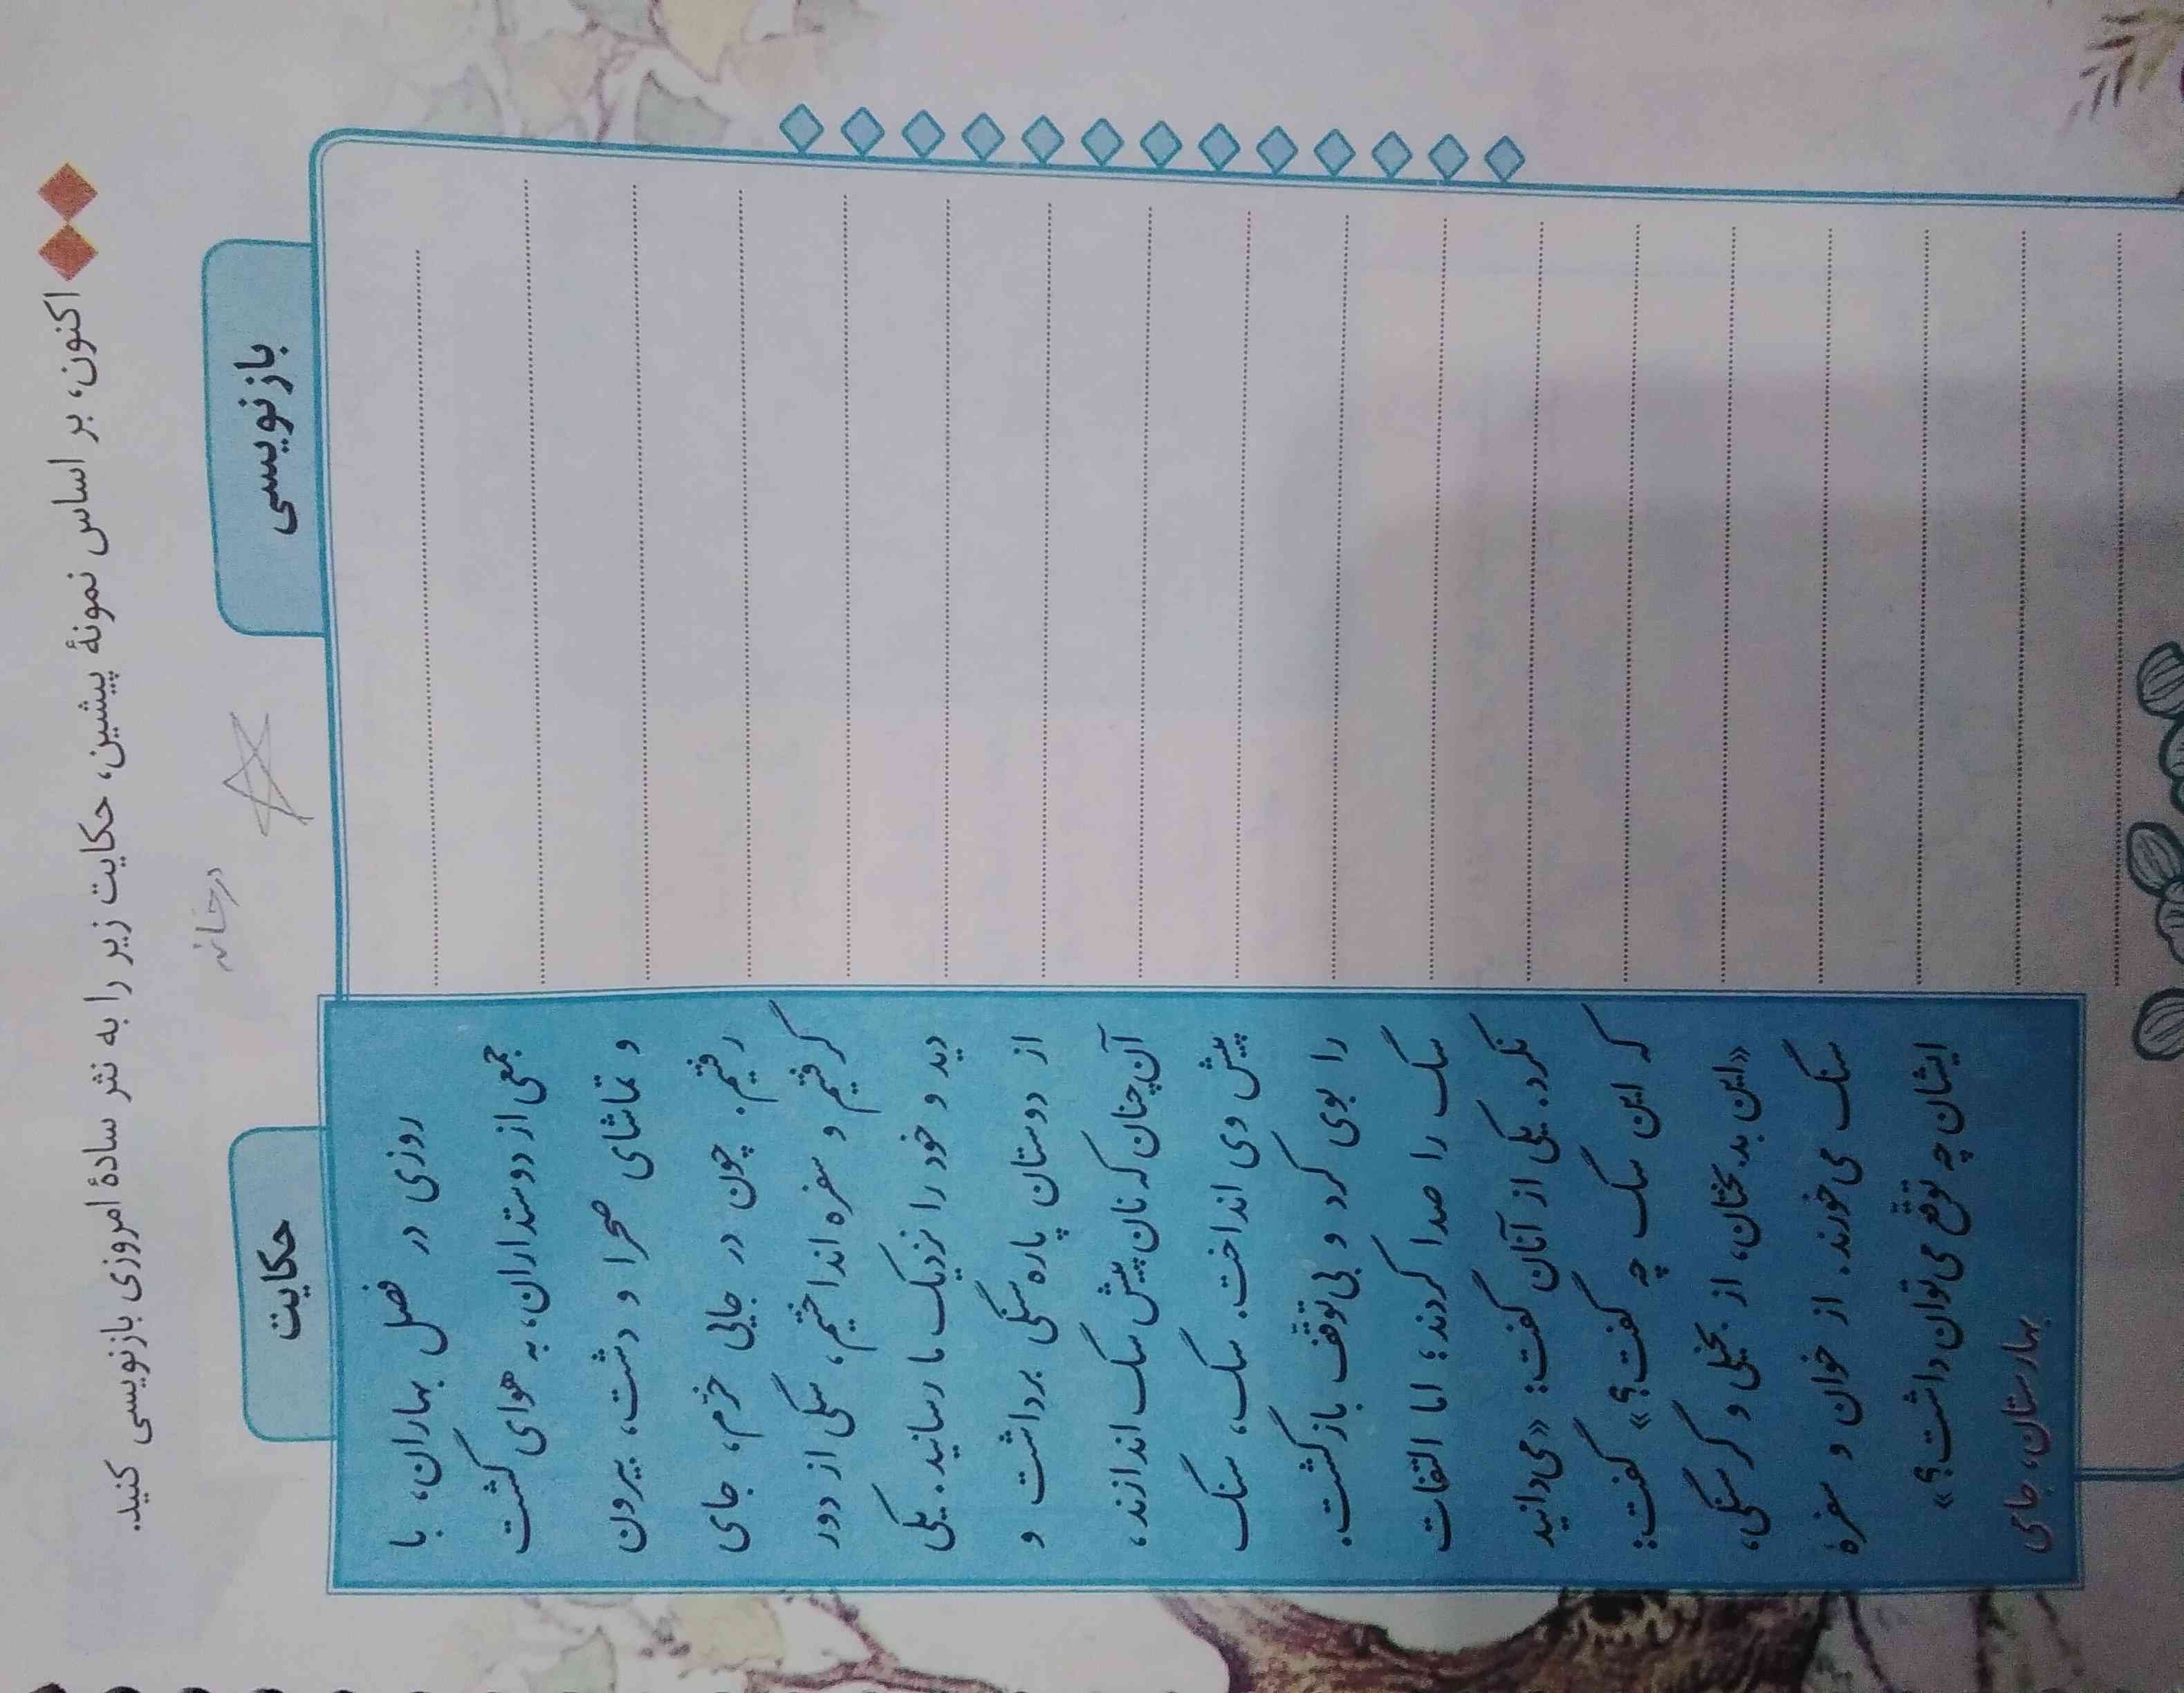 اکنون، بر اساس نمونهٔ پیشین، حکایت زیر را به نثر سادهٔ امروزی بازنویسی کنید.
درخانه
حکایت
بازنویسی
روزی در فصل بهاران، با
جمعی از دوستداران، به هوای گشت
و تماشای صحرا و دشت، بیرون
رفتیم. چون در جایی خرّم، جای
گرفتیم و سفره انداختیم، سگی از دور
دید و خود را نزدیک ما رسانید. یکی
از دوستان پاره سنگی برداشت و
آن‌چنان که نان پیش سگ اندازند،
پیش وی انداخت. سگ، سنگ
را بوی کرد و بی‌توقّف بازگشت.
سگ را صدا کردند؛ اما التفات
نکرد. یکی از آنان گفت: «می‌دانید
که این سگ چه گفت؟» گفت:
«این بدبختان، از بخیلی و گرسنگی،
سنگ می‌خورند. از خوان و سفرهٔ
ایشان چه توقّع می‌توان داشت؟»
بهارستان، جامی